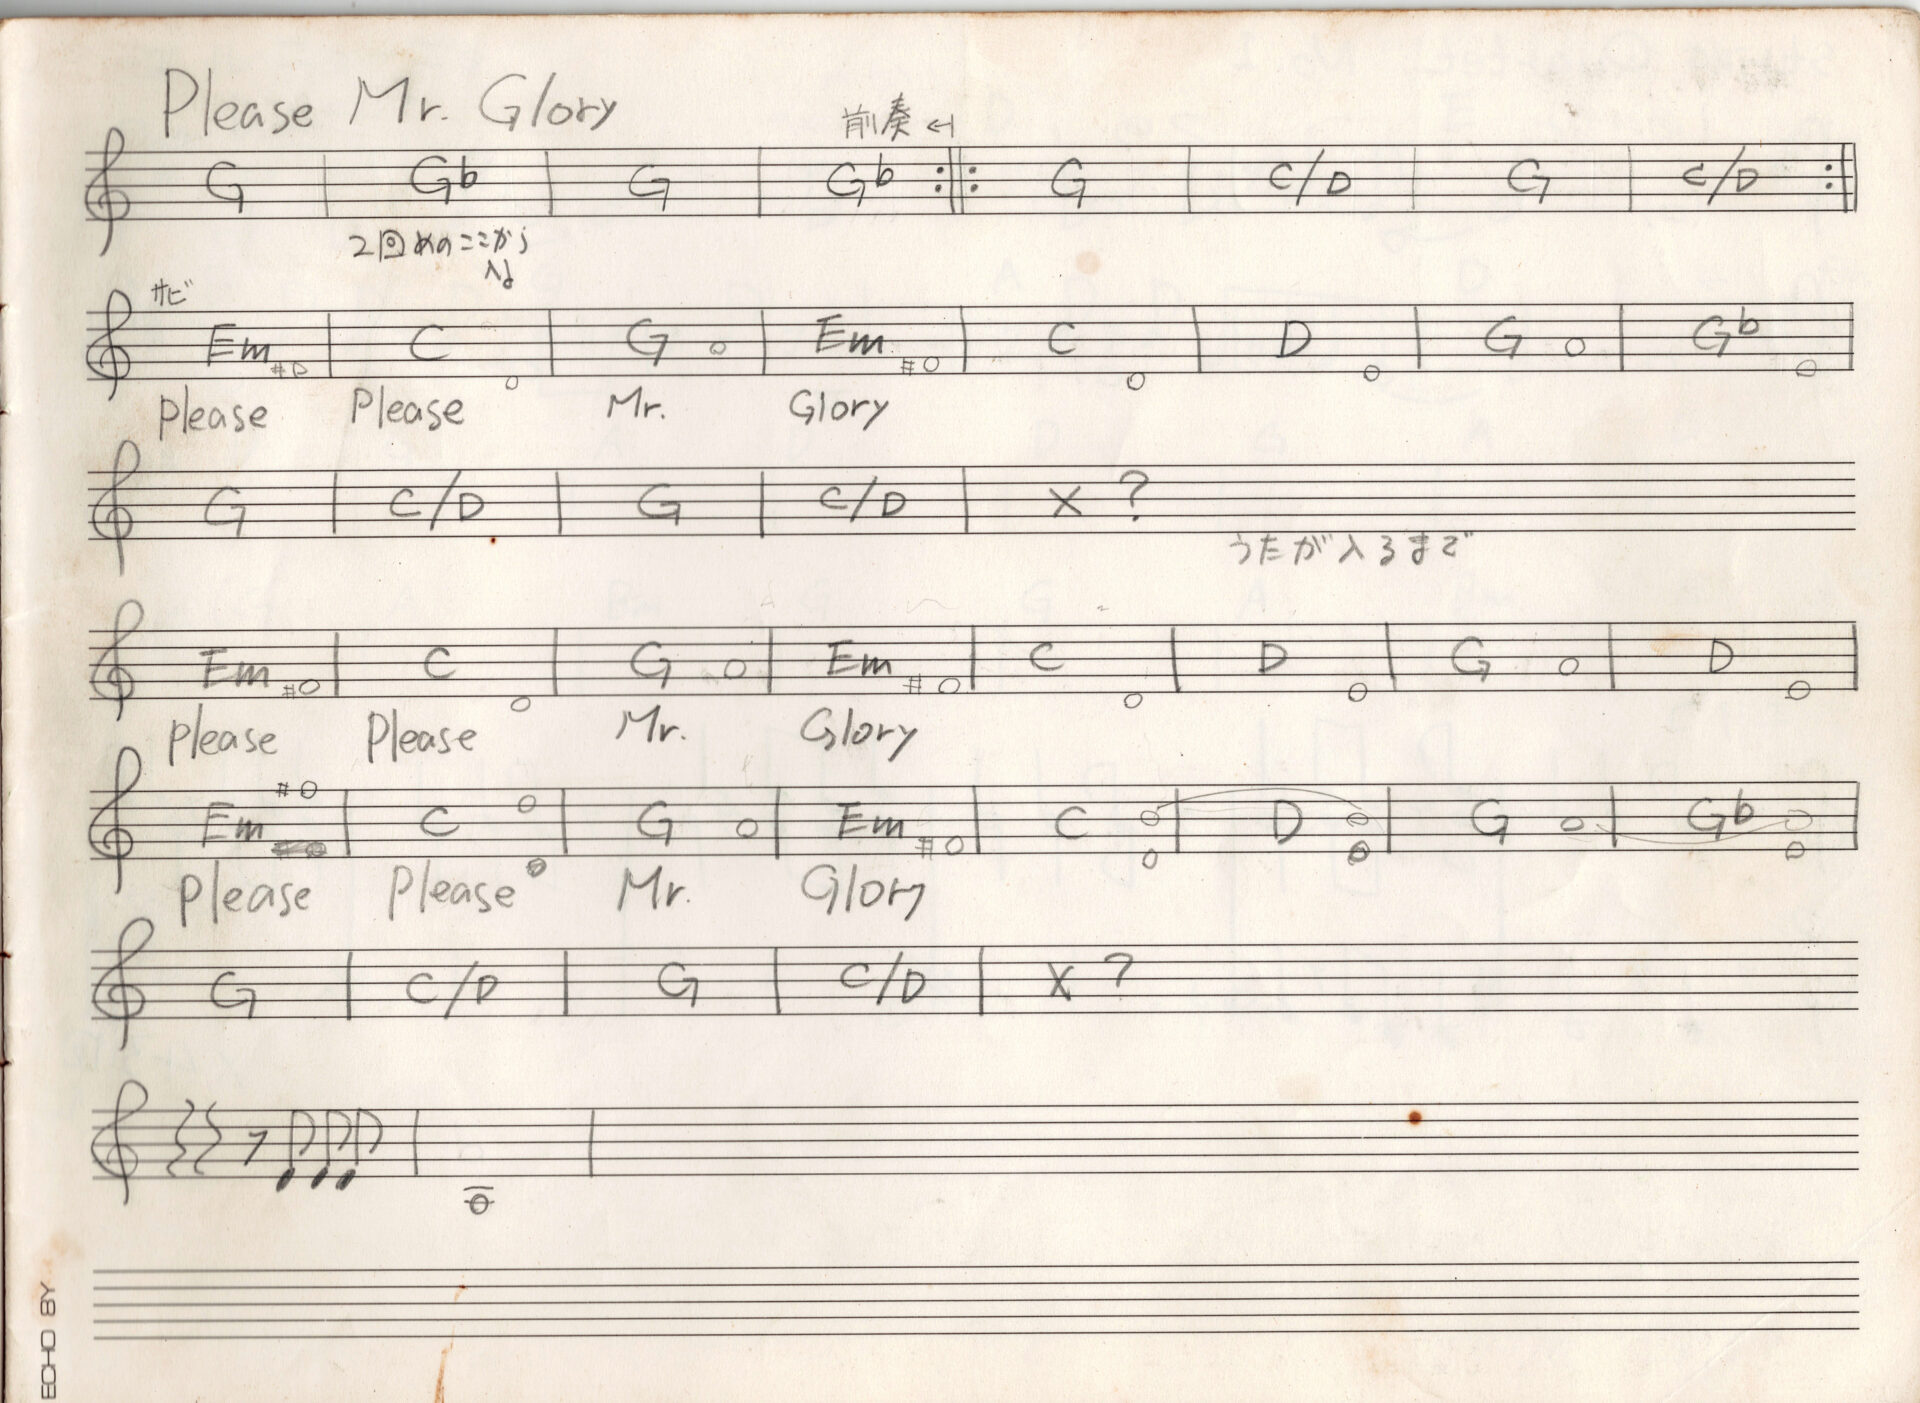 Please Mr. Glory
前奏 ←
G Gb G Gb G C/D G C/D
2回めのここから
入る
サビ
Em C G Em C D G Gb
Please Please Mr. Glory
G C/D G C/D X ?
うたが入るまで
Em C G Em C D G D
Please Please Mr. Glory
Em C G Em C D G Gb
Please Please Mr. Glory
G C/D G C/D X ?
ECHO BY